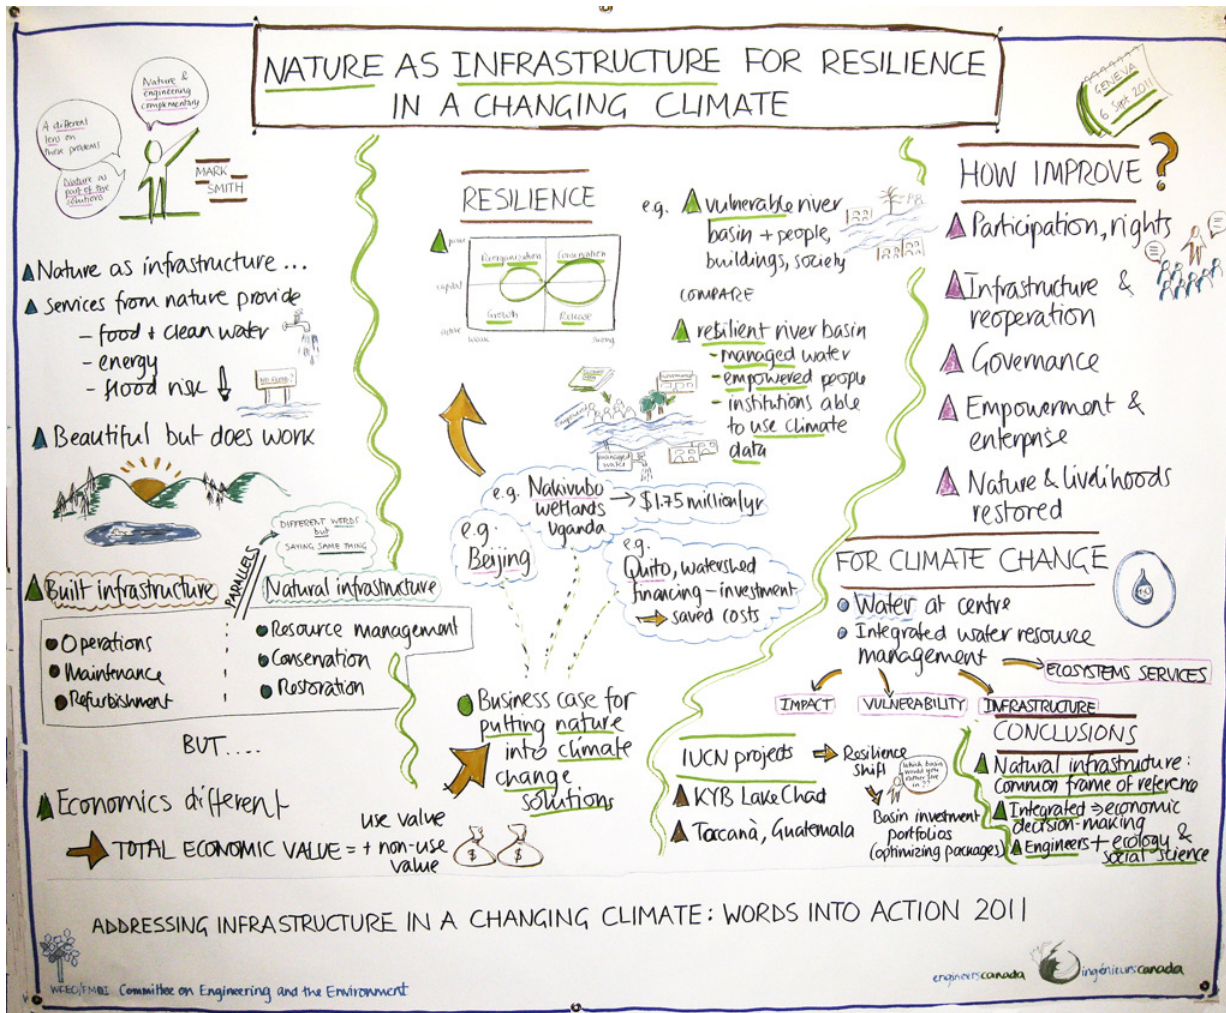 NATURE AS INFRASTRUCTURE FOR RESILIENCE
IN A CHANGING CLIMATE
GENEVA
6 Sept 2011
Nature &
engineering
complementary
A different
lens on
these problems
Nature as
part of the
solutions
MARK
SMITH
Nature as infrastructure ...
Services from nature provide
- food + clean water
- energy
- flood risk
NO FLOOD!
Beautiful but does work
DIFFERENT WORDS
but
SAYING SAME THING
PARALLELS
Built infrastructure
Natural infrastructure
Operations
Maintenance
Refurbishment
Resource management
Conservation
Restoration
BUT....
Economics different
TOTAL ECONOMIC VALUE =
use value
+ non-use
value
$
$
RESILIENCE
Reorganization
Conservation
capital
Growth
Release
weak
strong
e.g. vulnerable river
basin + people,
buildings, society
COMPARE
resilient river basin
- managed water
- empowered people
- institutions able
to use climate
data
managed
water
e.g. Nakivubo
wetlands
Uganda
→ $1.75 million/yr
e.g.
Beijing
e.g.
Quito, watershed
financing - investment
saved costs
Business case for
putting nature
into climate
change
solutions
HOW IMPROVE ?
Participation, rights
Infrastructure &
reoperation
Governance
Empowerment &
enterprise
Nature & livelihoods
restored
FOR CLIMATE CHANGE
H2O
Water at centre
Integrated water resource
management
ECOSYSTEMS SERVICES
IMPACT
VULNERABILITY
INFRASTRUCTURE
IUCN projects
KYB Lake Chad
Tacanà, Guatemala
Resilience
shift
Which basin
would you
rather live
in ??
Basin investment
portfolios
(optimizing packages)
CONCLUSIONS
Natural infrastructure:
common frame of reference
Integrated ⇒ economic
decision-making
Engineers + ecology &
social science
ADDRESSING INFRASTRUCTURE IN A CHANGING CLIMATE: WORDS INTO ACTION 2011
WFEO/FMOI Committee on Engineering and the Environment
engineerscanada
ingénieurscanada